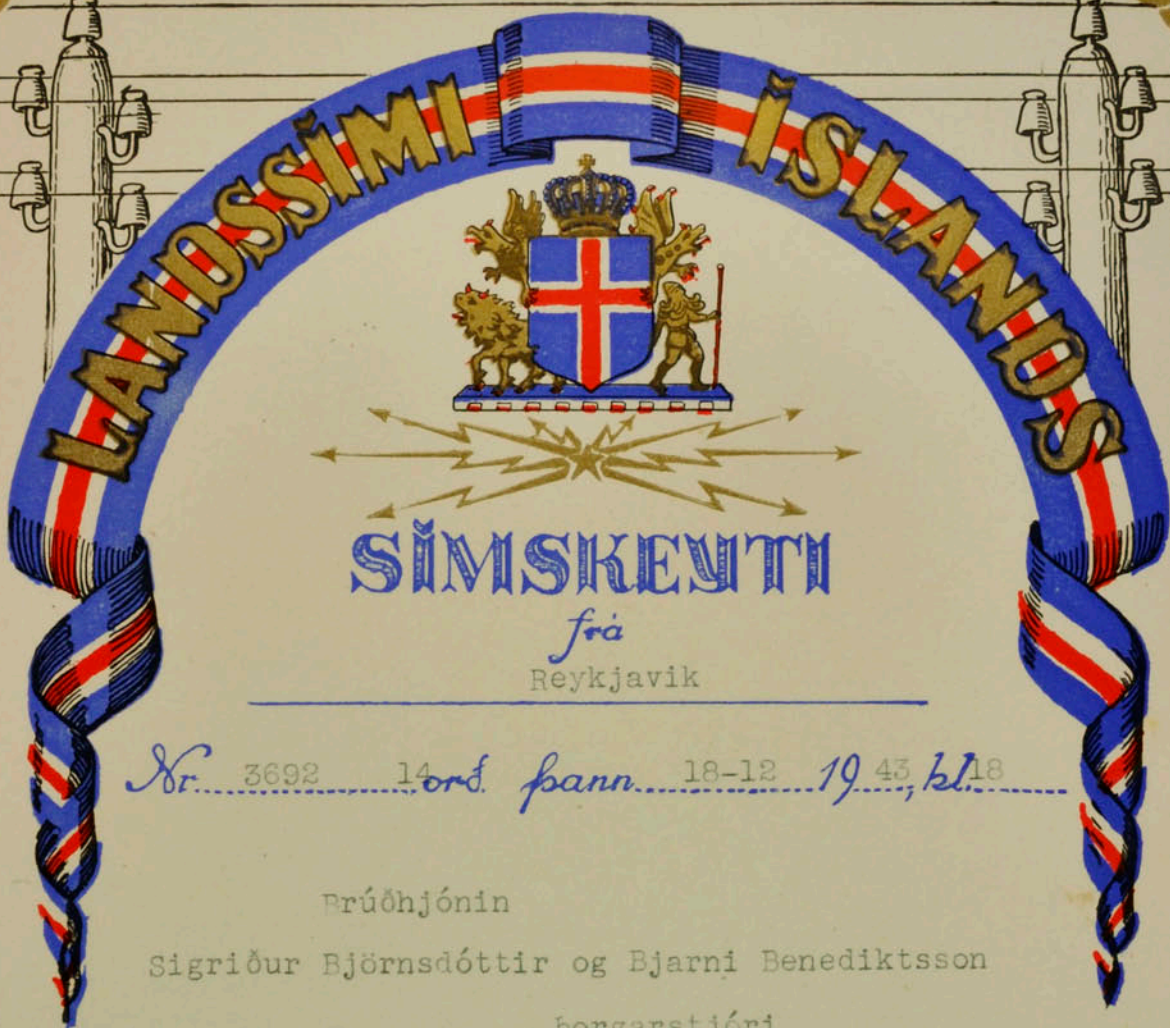 LANDSSÍMI ÍSLANDS
SÍMSKEYTI
frá
Reykjavik
Nr. 3692 14 orð. þann 18-12 19 43, kl. 18
Brúðhjónin
Sigriður Björnsdóttir og Bjarni Benediktsson
borgarstjóri